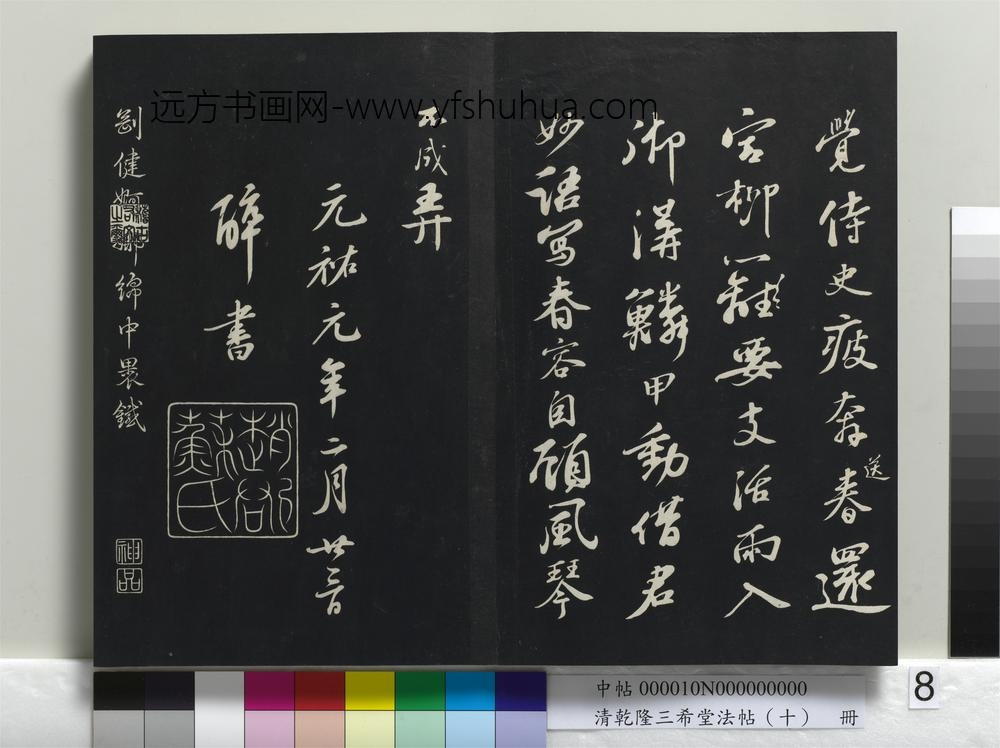 覺侍史疲奔送春還
宮柳要支活雨入
御溝鱗甲動借君
妙語寫春容自顧風琴
不成弄
元祐元年二月廿日
醉書
趙郡蘇氏
剛健婀娜綿中褁鐵
神品
远方书画网-www.yfshuhua.com
中帖 000010N000000000
清乾隆三希堂法帖（十） 冊
8